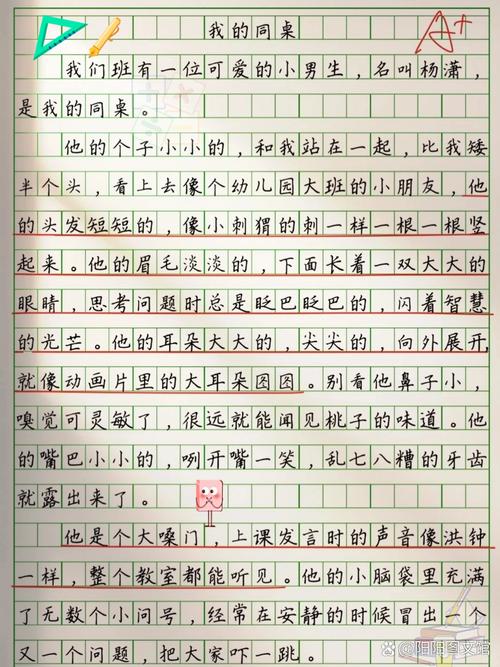 我的同桌
A+
我们班有一位可爱的小男生，名叫杨潇，
是我的同桌。
他的个子小小的，和我站在一起，比我矮
半个头，看上去像个幼儿园大班的小朋友，他
的头发短短的，像小刺猬的刺一样一根一根竖
起来。他的眉毛淡淡的，下面长着一双大大的
眼睛，思考问题时总是眨巴眨巴的，闪着智慧
的光芒。他的耳朵大大的，尖尖的，向外展开，
就像动画片里的大耳朵图图。别看他鼻子小，
嗅觉可灵敏了，很远就能闻见桃子的味道。他
的嘴巴小小的，咧开嘴一笑，乱七八糟的牙齿
就露出来了。
他是个大嗓门，上课发言时的声音像洪钟
一样，整个教室都能听见。他的小脑袋里充满
了无数个小问号，经常在安静的时候冒出一个
又一个问题，把大家吓一跳。
阳阳图文馆